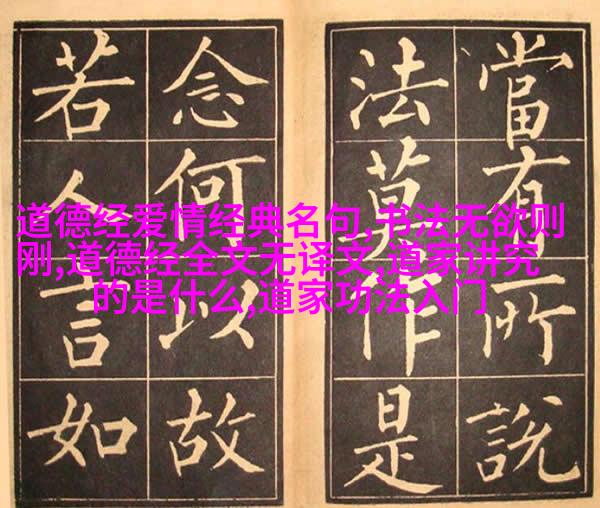 當有所說
法莫作是
念何以故
若人言如
道德经爱情经典名句,书法无欲则
刚,道德经全文无译文,道家讲究
的是什么,道家功法入门